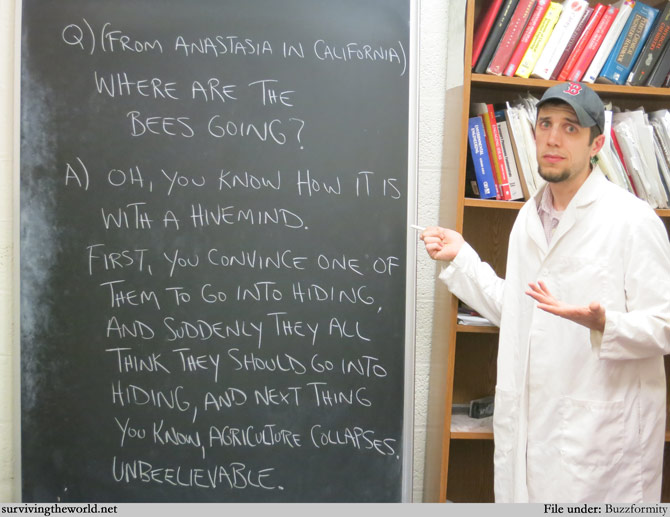 Q) (FROM ANASTASIA IN CALIFORNIA)
WHERE ARE THE
BEES GOING?
A) OH, YOU KNOW HOW IT IS
WITH A HIVEMIND.
FIRST, YOU CONVINCE ONE OF
THEM TO GO INTO HIDING,
AND SUDDENLY THEY ALL
THINK THEY SHOULD GO INTO
HIDING, AND NEXT THING
YOU KNOW, AGRICULTURE COLLAPSES.
UNBEELIEVABLE.
B
survivingtheworld.net
File under: Buzzformity